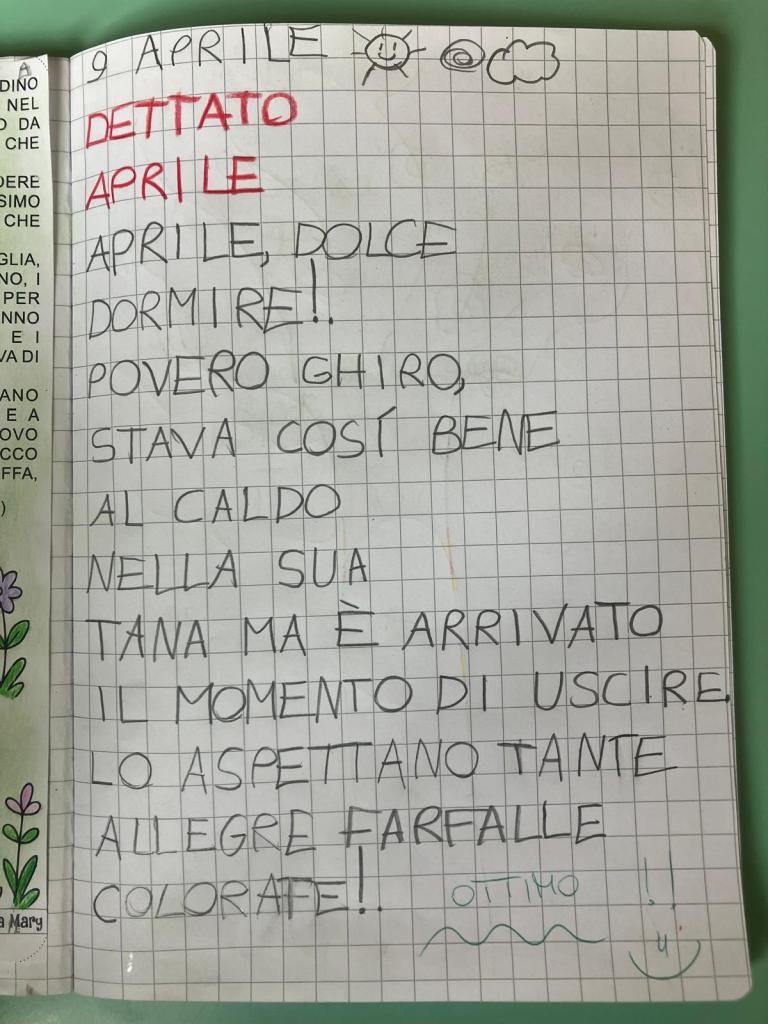 A
DINO
NEL
DA
CHE
DERE
SIMO
CHE
GLIA,
NO, I
PER
NNO
E I
VA DI
ANO
E A
OVO
CCO
FFA,
)
a Mary
9 APRILE
DETTATO
APRILE
APRILE, DOLCE
DORMIRE!.
POVERO GHIRO,
STAVA COSÍ BENE
AL CALDO
NELLA SUA
TANA MA È ARRIVATO
IL MOMENTO DI USCIRE.
LO ASPETTANO TANTE
ALLEGRE FARFALLE
COLORATE!.
OTTIMO !!